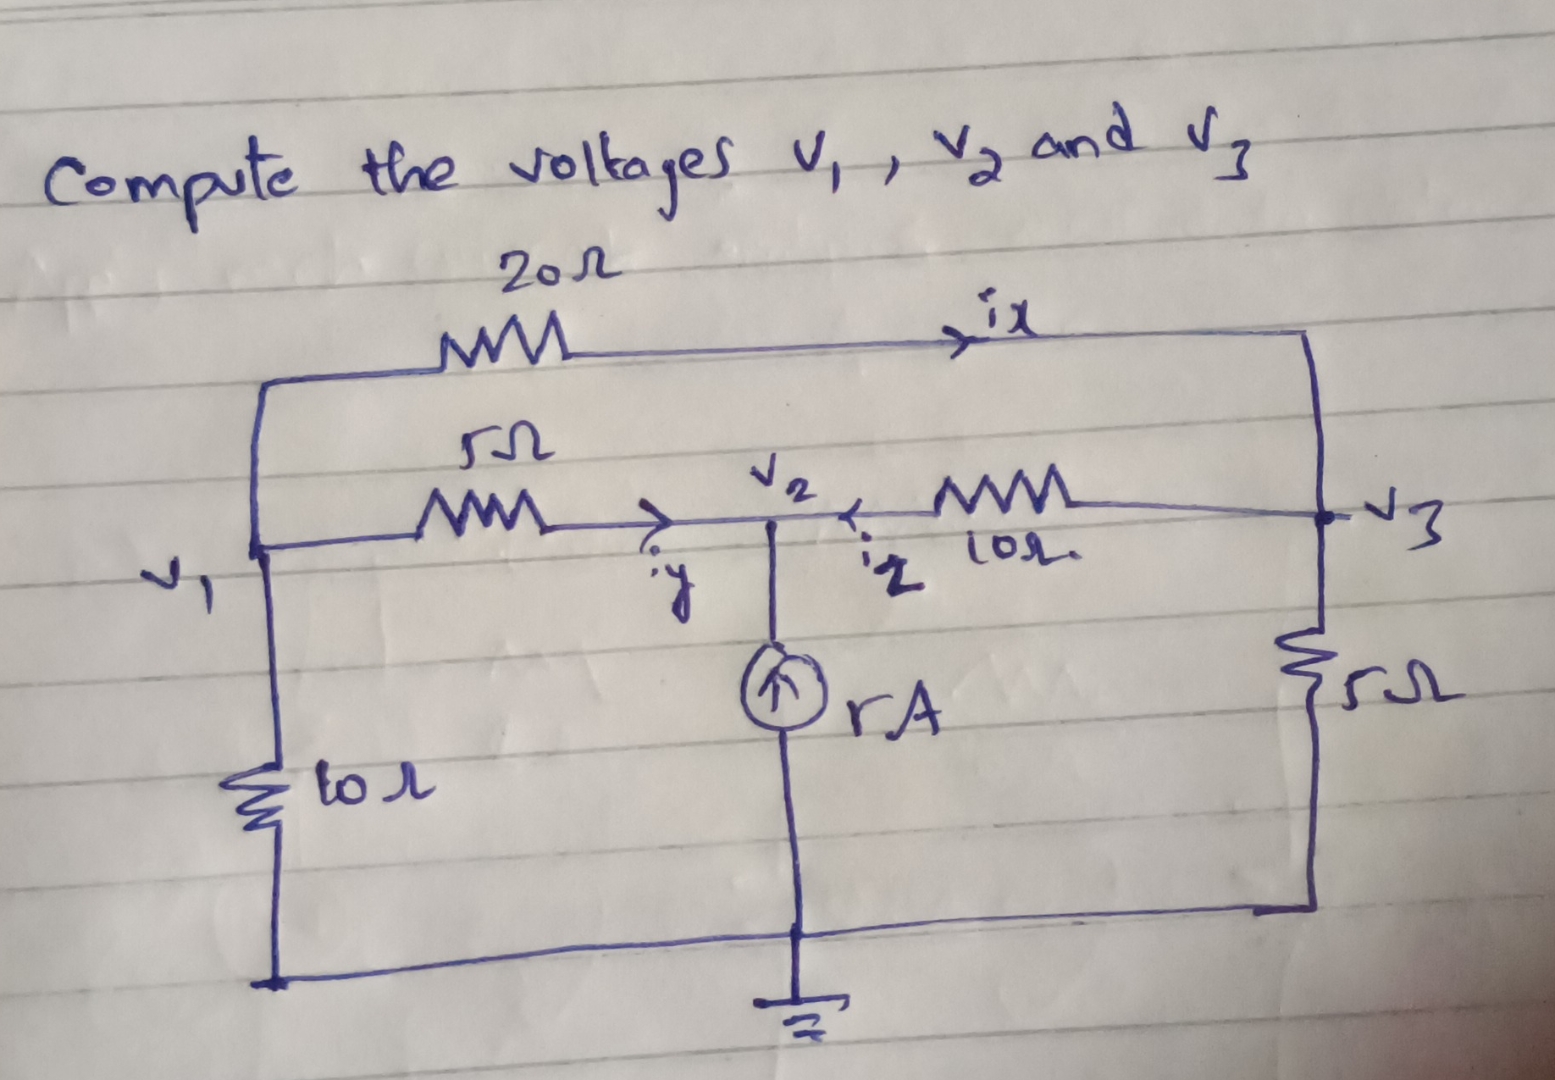 Compute the voltages v₁, v₂ and v₃
20Ω
ix
5Ω
v₂
v₃
v₁
iy
iz
10Ω.
5Ω
10Ω